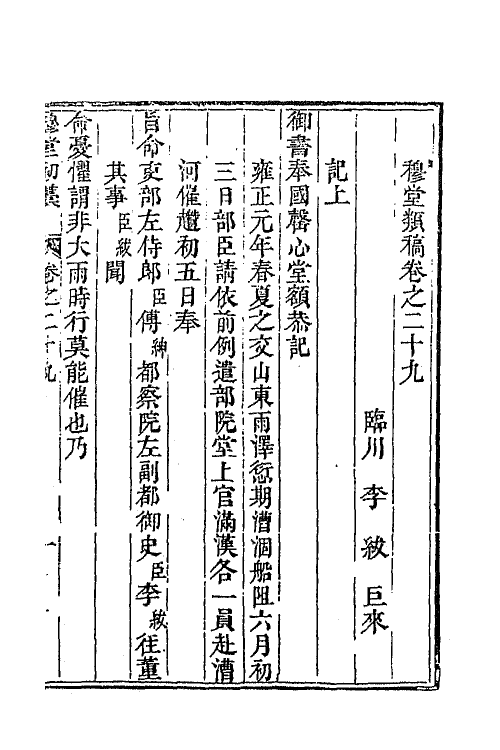 穆堂類稿卷之二十九
臨川 李 紱 巨來
記上
御書奉國馨心堂額恭記
雍正元年春夏之交山東雨澤愆期漕涸船阻六月初
三日部臣請依前例遣部院堂上官滿漢各一員赴漕
河催趲初五日奉
旨命吏部左侍郎臣傅紳都察院左副都御史臣李紱往董
其事臣紱聞
命憂懼謂非大雨時行莫能催也乃
穆堂初藁 卷之二十九 一